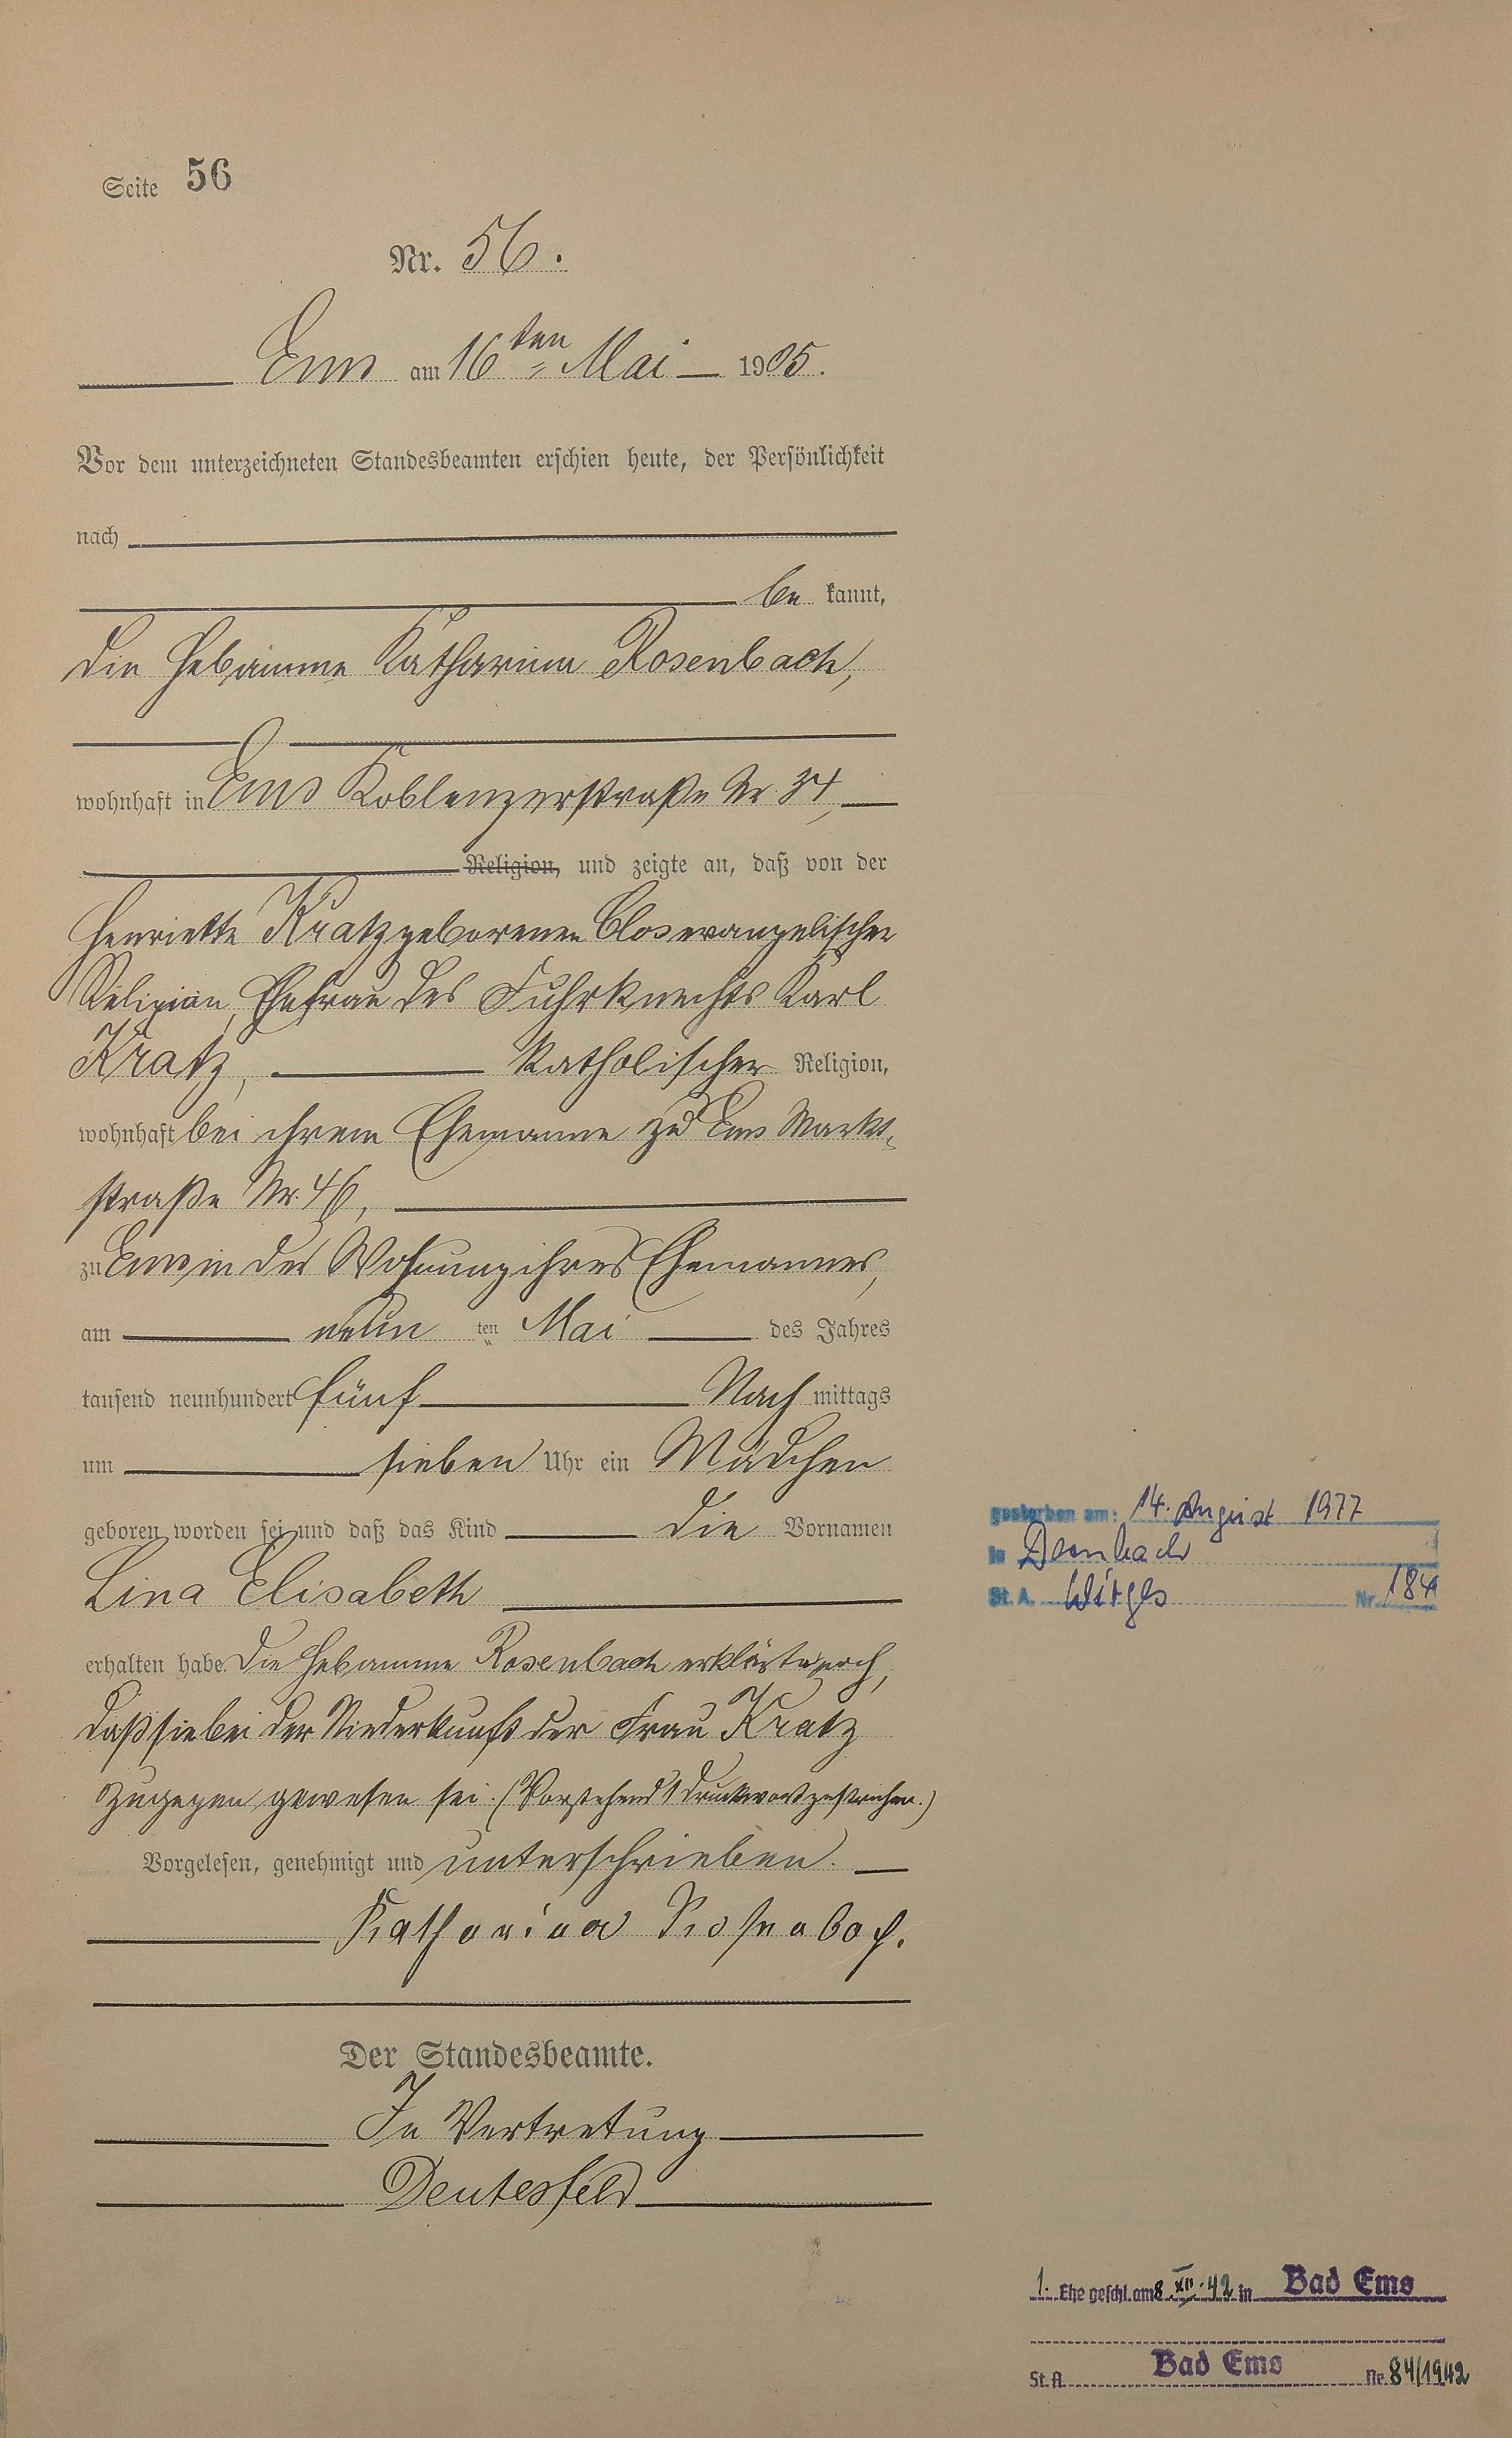 Seite 56
Nr. 56.
Ems am 16ten Mai 1905.
Vor dem unterzeichneten Standesbeamten erschien heute, der Persönlichkeit
nach
be kannt,
die Hebamme Katharina Rosenbach,
wohnhaft in Ems Koblenzerstraße Nr. 34,
Religion, und zeigte an, daß von der
Henriette Kratz geborenen Clos evangelischer
Religion, Ehefrau des Fuhrknechts Karl
Kratz, katholischer Religion,
wohnhaft bei ihrem Ehemanne zu Ems Markt-
straße Nr. 46,
zu Ems in der Wohnung ihres Ehemannes,
am neun ten Mai des Jahres
tausend neunhundert fünf Nach mittags
um sieben Uhr ein Mädchen
geboren worden sei und daß das Kind die Vornamen
Lina Elisabeth
erhalten habe. Die Hebamme Rosenbach erklärte noch,
daß sie bei der Niederkunft der Frau Kratz
zugegen gewesen sei. (Vorstehend 1 Druckwort gestrichen.)
Vorgelesen, genehmigt und unterschrieben.
Katharina Rosenbach.
Der Standesbeamte.
In Vertretung
Deutesfeld
gestorben am: 14. August 1977
in Dernbach
St. A. Wirges Nr. 184
1. Ehe geschl. am 8. XII. 42 in Bad Ems
St. A. Bad Ems Nr. 84/1942